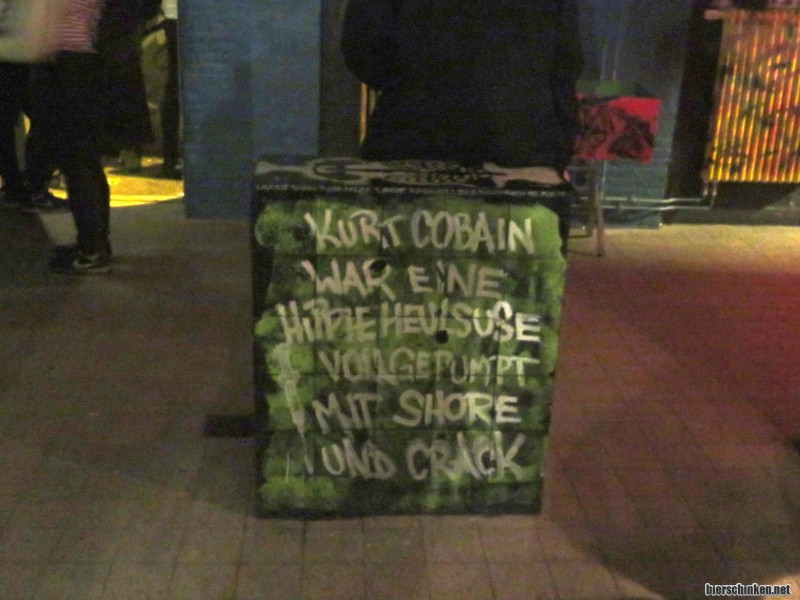 KURT COBAIN
WAR EINE
HIPPIE HEULSUSE
VOLLGEPUMPT
MIT SHORE
UND CRACK
bierschinken.net